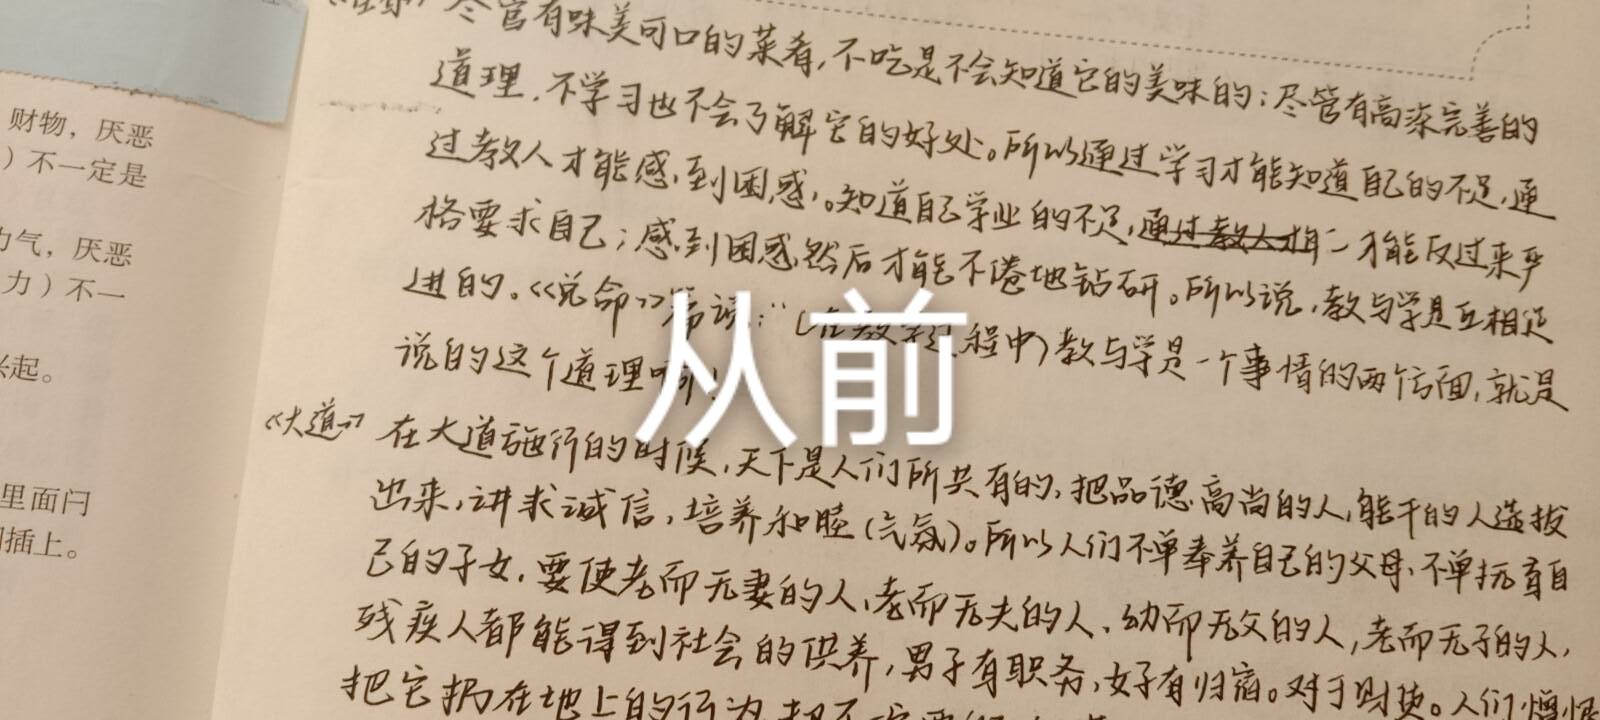 尽管有味美可口的菜肴,不吃是不会知道它的美味的;尽管有高深完善的
道理.不学习也不会了解它的好处。所以通过学习才能知道自己的不足,通
过教人才能感到困惑。知道自己学业的不足,通过教人才 才能反过来严
格要求自己;感到困惑然后才能不倦地钻研。所以说,教与学是互相促
进的。《兑命》篇说:"(在教学过程中)教与学是一个事情的两个方面,就是
说的这个道理啊!
从前
《大道》 在大道施行的时候,天下是人们所共有的,把品德高尚的人,能干的人选拔
出来,讲求诚信,培养和睦(气氛)。所以人们不单奉养自己的父母、不单抚育自
己的子女.要使老而无妻的人、老而无夫的人、幼而无父的人,老而无子的人,
残疾人都能得到社会的供养,男子有职务,女子有归宿。对于财货。人们
把它扔在地上的行为
财物,厌恶
)不一定是
力气,厌恶
力)不一
起。
里面闩
插上。